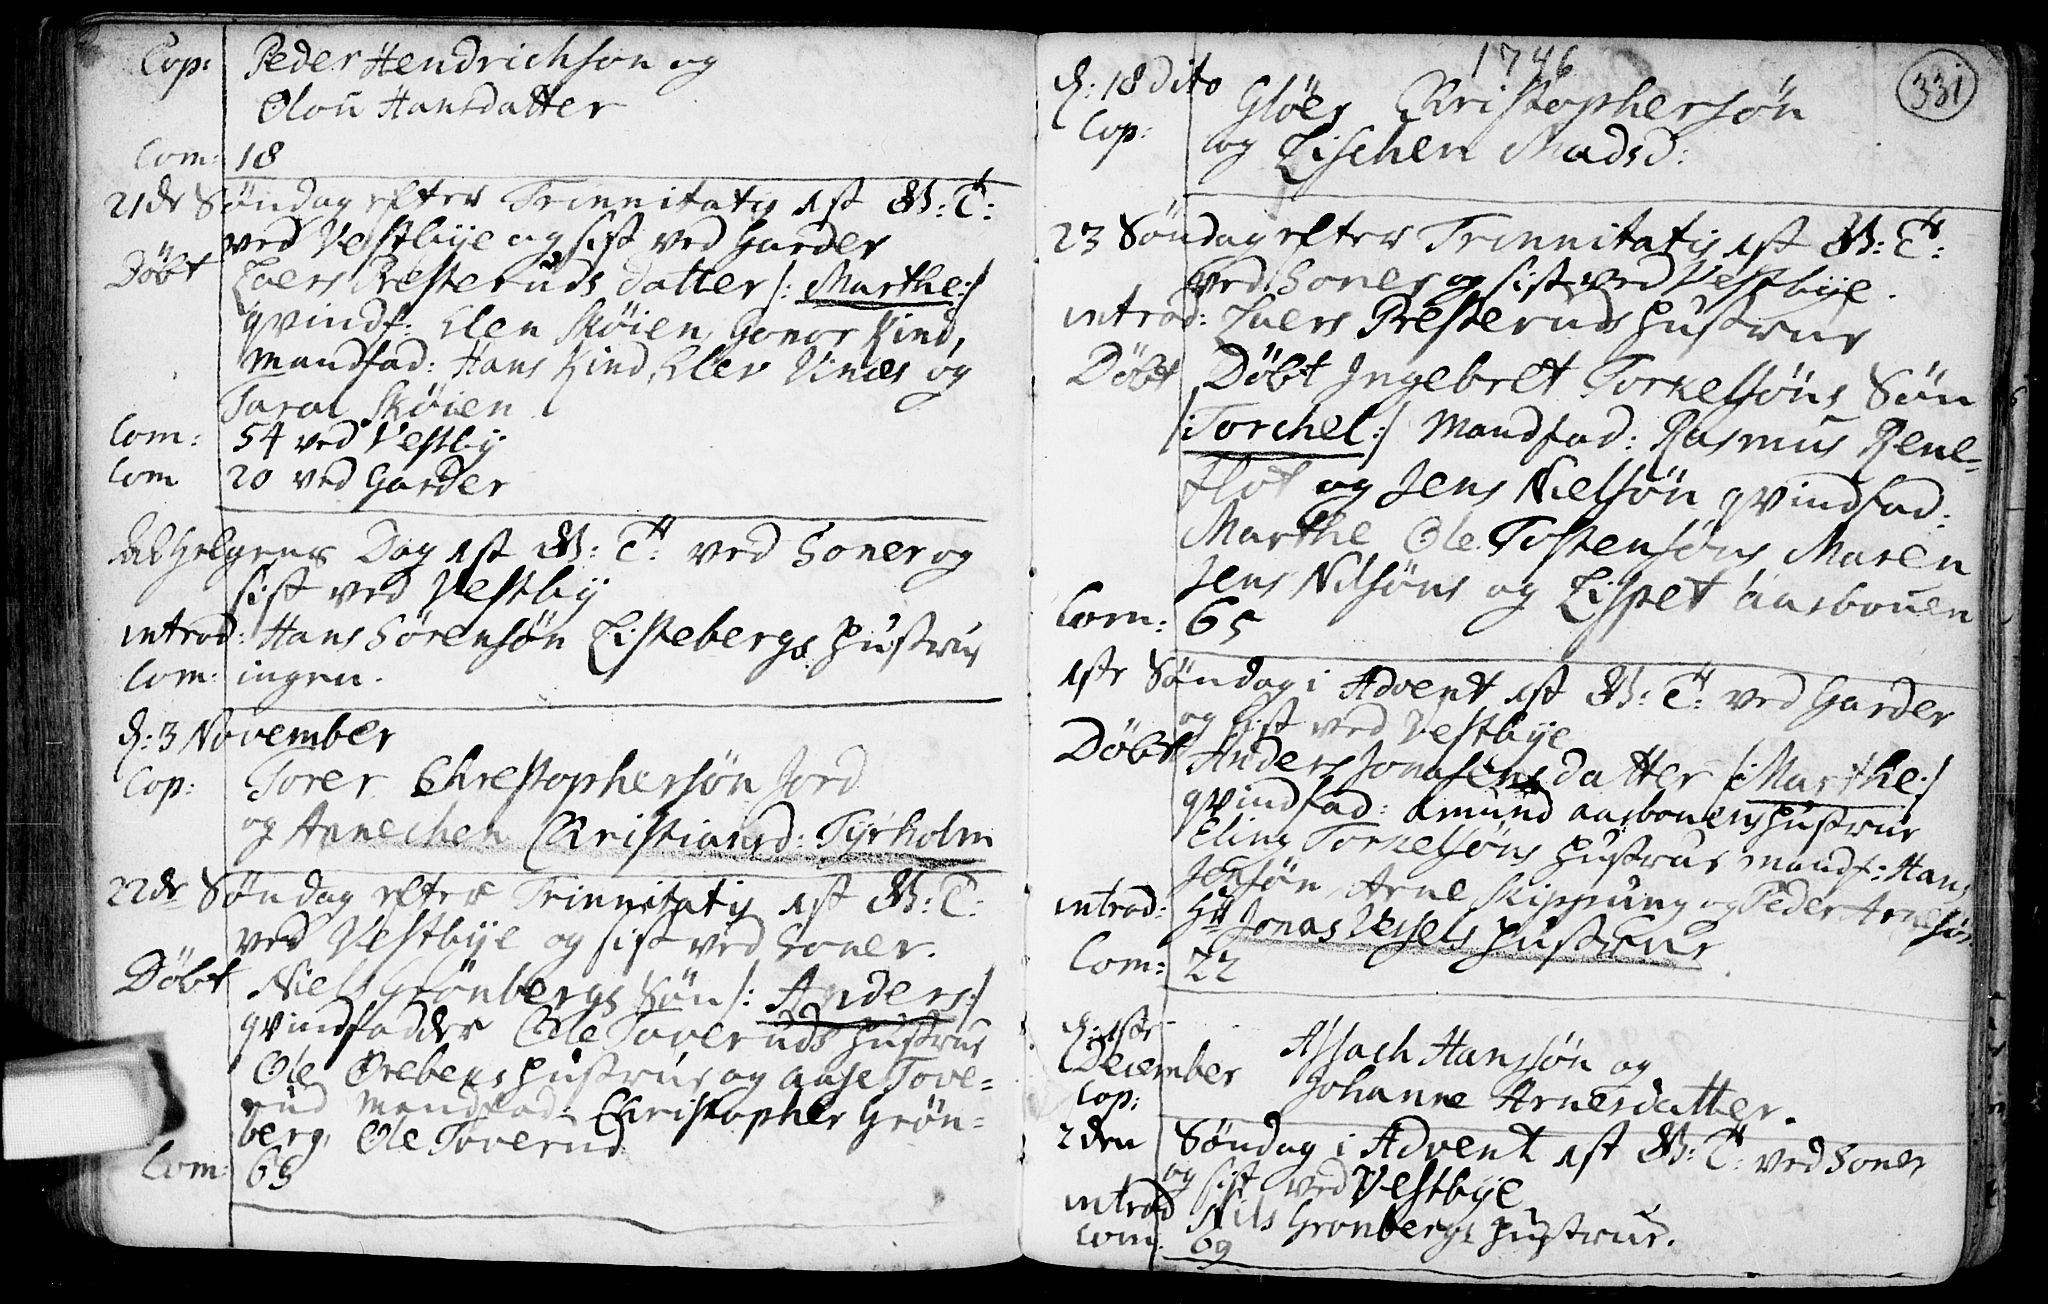 Cop: Peder Hendrichson og
Olou Hansdatter
Com: 18
21de Søndag efter Trinnitatis 1st W: T:
ved Vestbye og sist ved Garder
Døbt Lars Presteruds datter /: Marthe :/
qvindf: Elen Skøien, Gonor Kind,
mandfad: Hans Kind, Elev Vinæs og
Taral Skøien
Com: 54 ved Vestby
Com 20 ved Garder
Alhelgens Dag 1st W: T: ved Soner og
sist ved Vestby
introd: Hans Sørensøn Listebergs hustrue
Com: ingen.
d: 3 November
Cop: Torer Chrestophersøn Jord
og Annechen Christiansd: Tyrholm
22de Søndag efter Trinnitatis 1st W: T:
ved Vestbye og sist ved Soner.
Døbt Niels Grønbergs Søn /: Anders :/
qvindfadder Ole Toveruds hustrue
OleØrebeks hustrue og Aase Tove=
rud Mandfad: Christopher Grøn=
berg, Ole Toverud
Com: 69
1746
331
d: 18 dito
Cop: Gløer Christophersøn
og Lischen Madsd:
23 Søndag efter Trinnitatis 1st W: T:
ved Soner og sist ved Vestbye.
introd: Lars Presteruds hustrue
Døbt Døbt Ingebret Torkelsøns Søn
/: Torchel :/ Mandfad: Rasmus Rene=
fløt og Jens Nielsøn qvindfad:
Marthe Ole Tostensøns, Maren
Jens Nilsøns og Lispet aasbouen
Com: 65
1ste Søndag i Advent 1st W: T: ved Garder
og sist ved Vestbye
Døbt Anders Jonasens datter /: Marthe :/
qvindfad: Amund aasbouens hustrue
Eling Torkelsøns hustrue mandf: Hans
Jensøn, Arne Skipprung og Peder Arnesøn
introd: Hr Jonas Vessels hustrue
Com: 22
d: 1ste
December Assach Hanssøn og
Cop: Johanne Arnesdatter.
2den Søndag i Advent 1st W: T: ved Soner
og sist ved Vestbye
introd Nils Grønbergs hustrue.
Com: 69